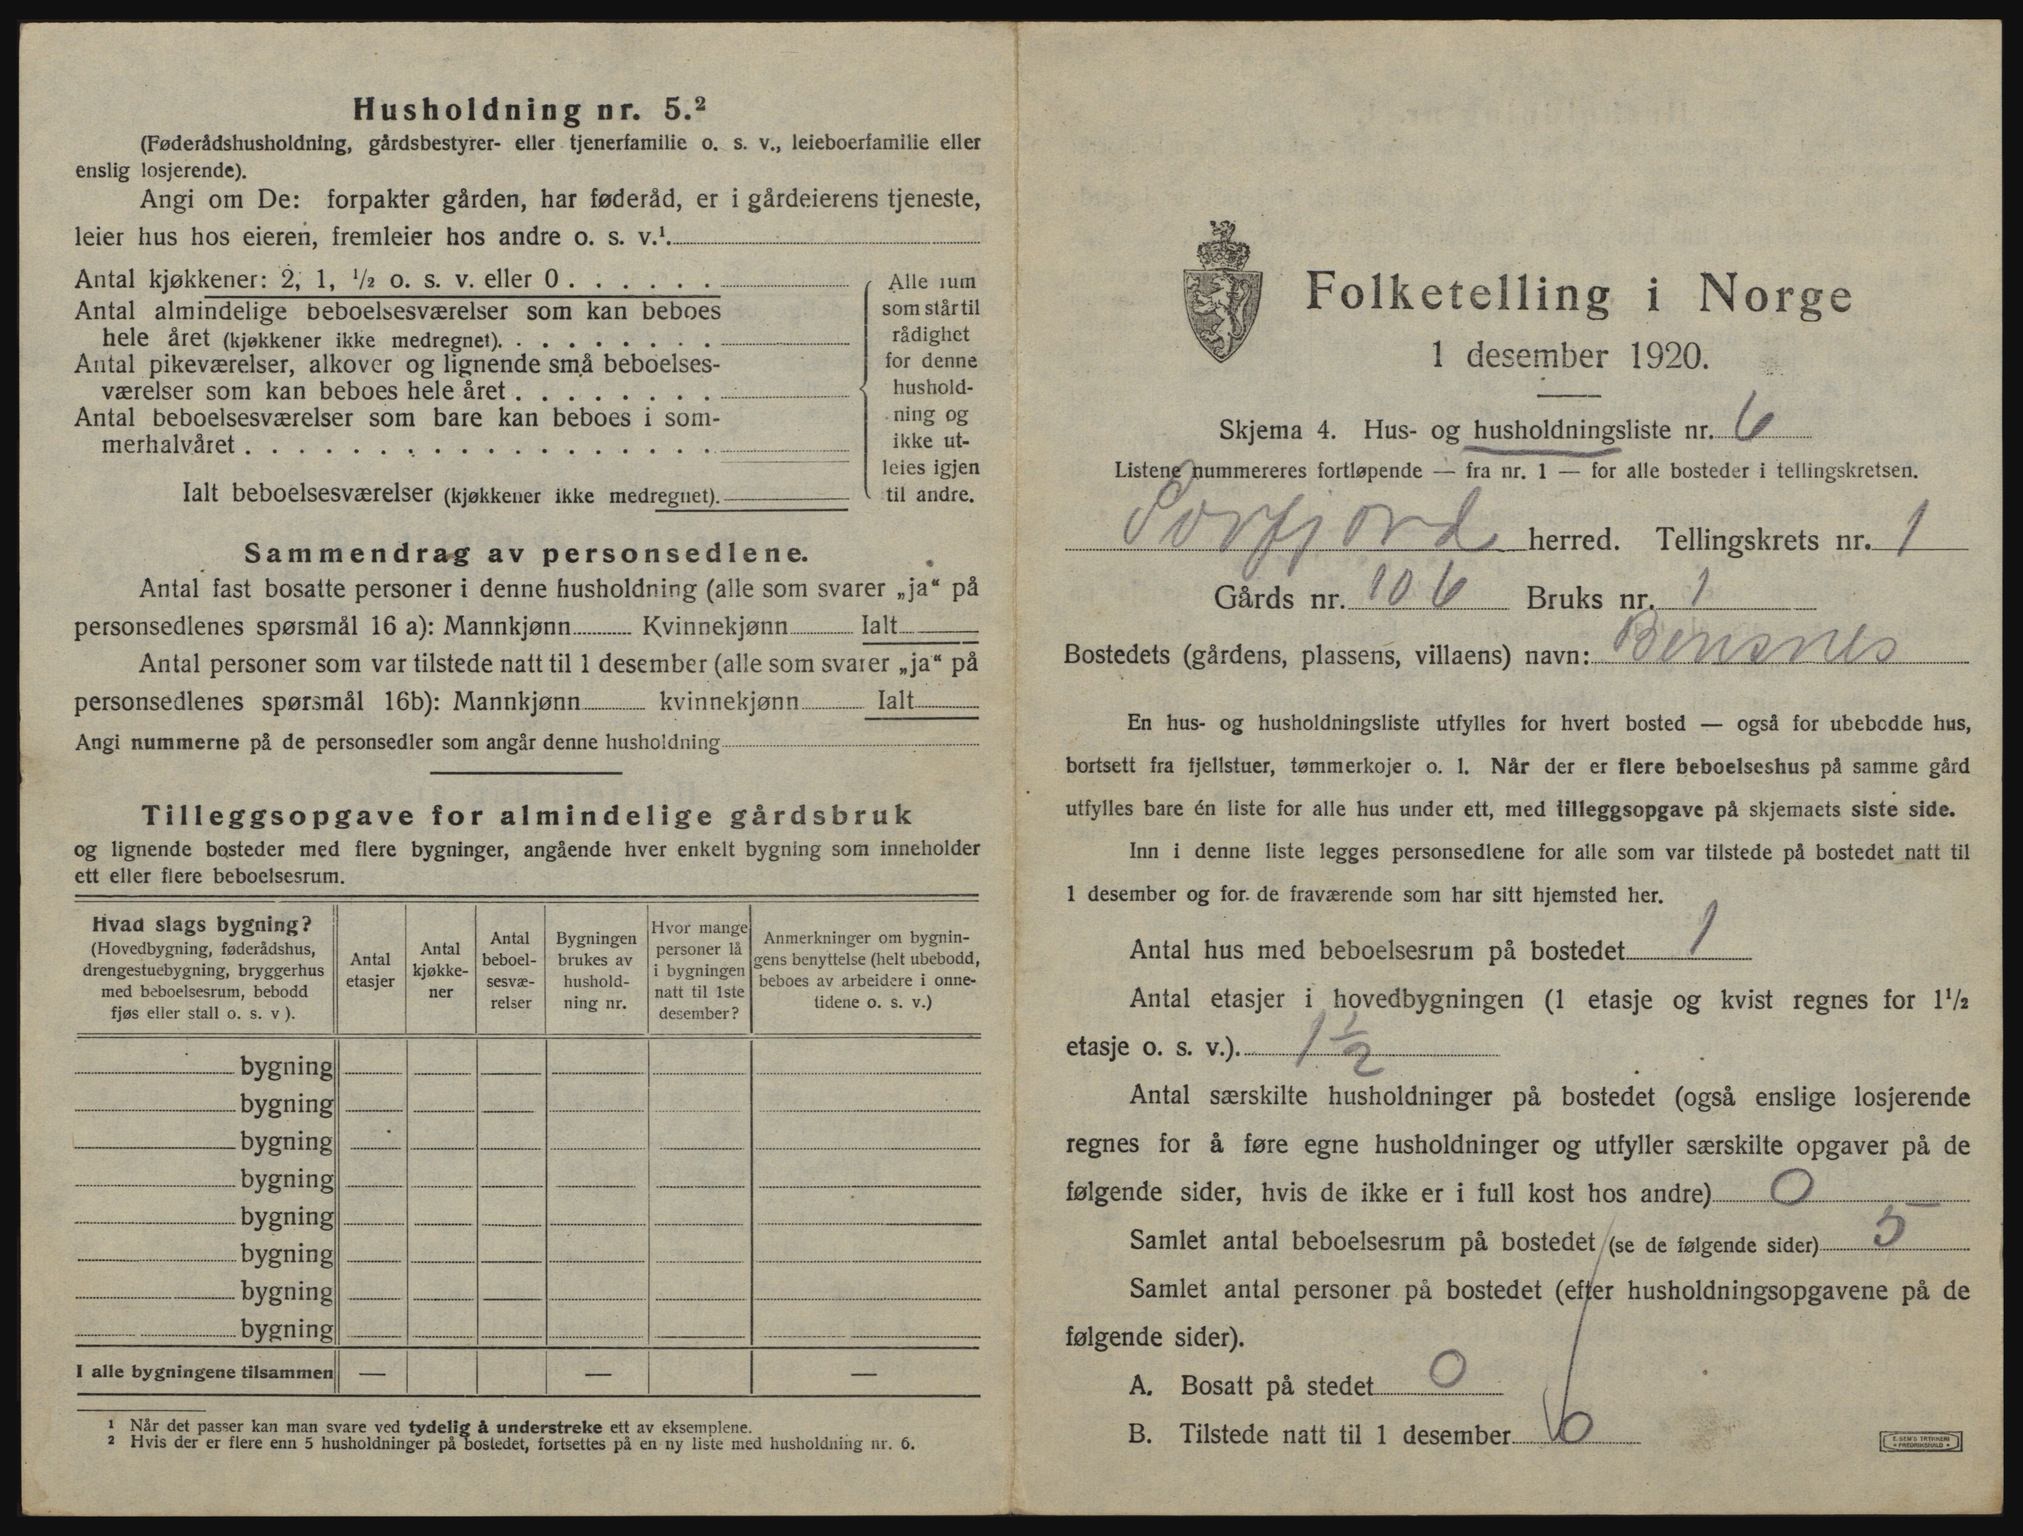 Husholdning nr. 5.²
(Føderådshusholdning, gårdsbestyrer- eller tjenerfamilie o. s. v., leieboerfamilie eller
enslig losjerende).
Angi om De: forpakter gården, har føderåd, er i gårdeierens tjeneste,
leier hus hos eieren, fremleier hos andre o. s. v.¹
Antal kjøkkener: 2, 1, ½ o. s. v. eller 0 . . . . . .
Antal almindelige beboelsesværelser som kan beboes
hele året (kjøkkener ikke medregnet). . . . . . . . .
Antal pikeværelser, alkover og lignende små beboelses-
værelser som kan beboes hele året . . . . . . . .
Antal beboelsesværelser som bare kan beboes i som-
merhalvåret . . . . . . . . . . . . . . . . .
Ialt beboelsesværelser (kjøkkener ikke medregnet).
Alle rum
som står til
rådighet
for denne
hushold-
ning og
ikke ut-
leies igjen
til andre.
Sammendrag av personsedlene.
Antal fast bosatte personer i denne husholdning (alle som svarer „ja“ på
personsedlenes spørsmål 16 a): Mannkjønn Kvinnekjønn Ialt
Antal personer som var tilstede natt til 1 desember (alle som svarer „ja“ på
personsedlenes spørsmål 16b): Mannkjønn kvinnekjønn Ialt
Angi nummerne på de personsedler som angår denne husholdning
Tilleggsopgave for almindelige gårdsbruk
og lignende bosteder med flere bygninger, angående hver enkelt bygning som inneholder
ett eller flere beboelsesrum.
Hvad slags bygning?
(Hovedbygning, føderådshus,
drengestuebygning, bryggerhus
med beboelsesrum, bebodd
fjøs eller stall o. s. v ).
Antal
etasjer
Antal
kjøkke-
ner
Antal
beboel-
sesvæ-
relser
Bygningen
brukes av
hushold-
ning nr.
Hvor mange
personer lå
i bygningen
natt til 1ste
desember?
Anmerkninger om bygnin-
gens benyttelse (helt ubebodd,
beboes av arbeidere i onne-
tidene o. s. v.)
bygning
bygning
bygning
bygning
bygning
bygning
bygning
bygning
I alle bygningene tilsammen — — —
¹ Når det passer kan man svare ved tydelig å understreke ett av eksemplene.
² Hvis der er flere enn 5 husholdninger på bostedet, fortsettes på en ny liste med husholdning nr. 6.
Folketelling i Norge
1 desember 1920.
Skjema 4. Hus- og husholdningsliste nr. 6
Listene nummereres fortløpende — fra nr. 1 — for alle bosteder i tellingskretsen.
Sørfjord herred. Tellingskrets nr. 1
Gårds nr. 106 Bruks nr. 1
Bostedets (gårdens, plassens, villaens) navn: Bensnes
En hus- og husholdningsliste utfylles for hvert bosted — også for ubebodde hus,
bortsett fra fjellstuer, tømmerkojer o. l. Når der er flere beboelseshus på samme gård
utfylles bare én liste for alle hus under ett, med tilleggsopgave på skjemaets siste side.
Inn i denne liste legges personsedlene for alle som var tilstede på bostedet natt til
1 desember og for de fraværende som har sitt hjemsted her.
Antal hus med beboelsesrum på bostedet 1
Antal etasjer i hovedbygningen (1 etasje og kvist regnes for 1½
etasje o. s. v.). 1½
Antal særskilte husholdninger på bostedet (også enslige losjerende
regnes for å føre egne husholdninger og utfyller særskilte opgaver på de
følgende sider, hvis de ikke er i full kost hos andre) 0
Samlet antal beboelsesrum på bostedet (se de følgende sider) 5
Samlet antal personer på bostedet (efter husholdningsopgavene på de
følgende sider).
A. Bosatt på stedet 0
B. Tilstede natt til 1 desember 0
E. SEM'S TRYKKERI
FREDRIKSHALD